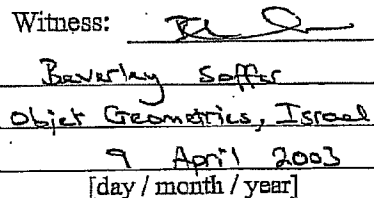 Witness:
Beverley Soffer
Objet Geometries, Israel
9 April 2003
[day / month / year]